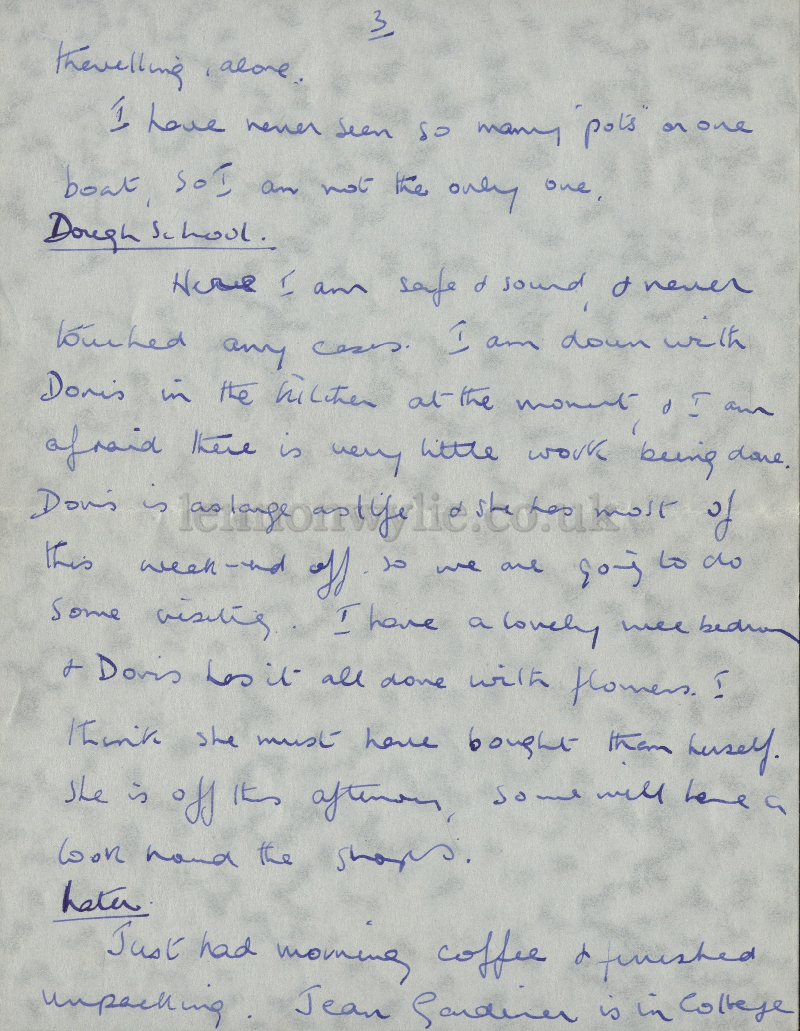 3
thevelling, alone.
I have never seen so many "pots" on one
boat, so I am not the only one.
Dough School.
Here I am safe & sound, & never
touched any cases. I am down with
Doris in the kitchen at the moment, & I am
afraid there is very little work being done.
Doris is as large as life & she has most of
lennonwylie.co.uk
this week-end off. so we are going to do
some visiting. I have a lovely wee bedroom
& Doris has it all done with flowers. I
think she must have bought them herself.
She is off this afternoon, so we will have a
look round the shops.
Later
Just had morning coffee & finished
unpacking. Jean Gardiner is in College